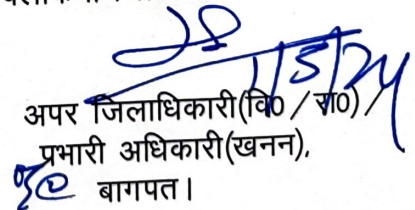 अपर जिलाधिकारी(वि0 / रा0) /
प्रभारी अधिकारी(खनन),
बागपत।